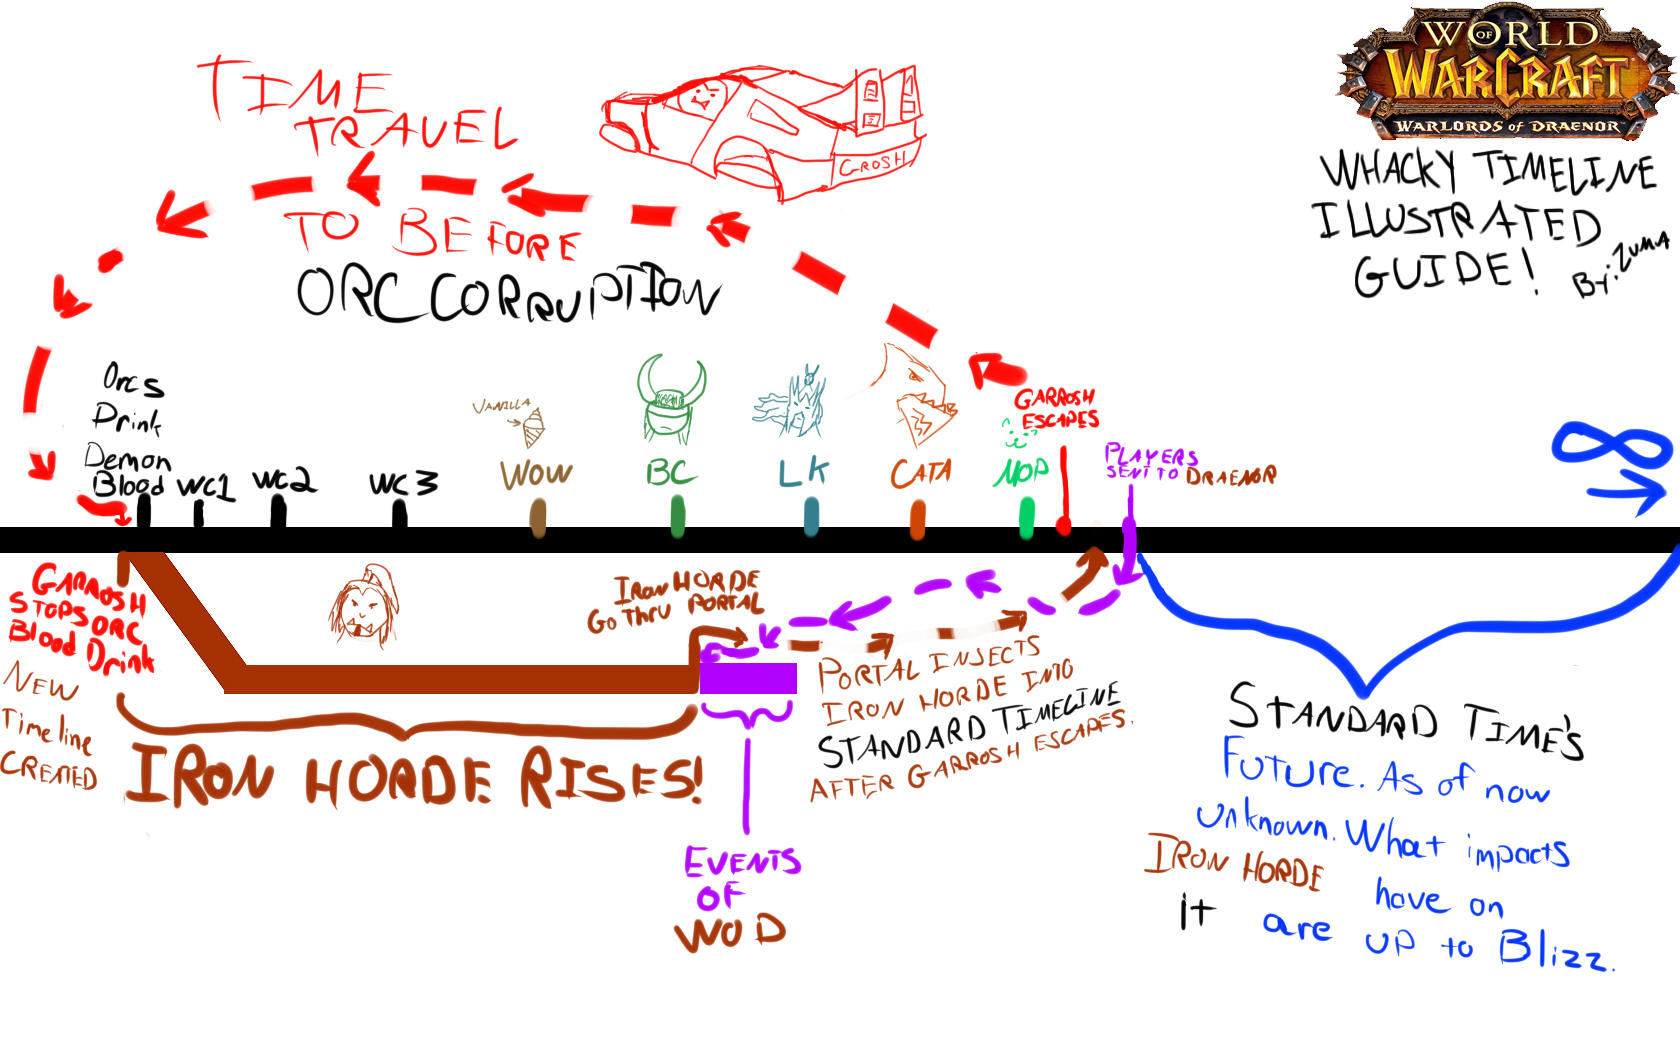 WORLD
OF
WARCRAFT
WARLORDS OF DRAENOR
WHACKY TIMELINE
ILLUSTRATED
GUIDE!
By: ZUMA
TIME
TRAVEL
TO BEFORE
ORC CORRUPTION
GROSH
Orcs
Drink
Demon
Blood
WC1
WC2
WC3
VANILLA
WOW
BC
LK
CATA
MOP
GARROSH
ESCAPES
PLAYERS
SENT TO DRAENOR
GARROSH
STOPS ORC
Blood Drink
NEW
Timeline
CREATED
IRON HORDE RISES!
IRON HORDE
GO THRU PORTAL
EVENTS
OF
WOD
PORTAL INJECTS
IRON HORDE INTO
STANDARD TIMELINE
AFTER GARROSH ESCAPES.
STANDARD TIME'S
FUTURE. As of now
unknown. What impacts
IRON HORDE have on
it are up to Blizz.